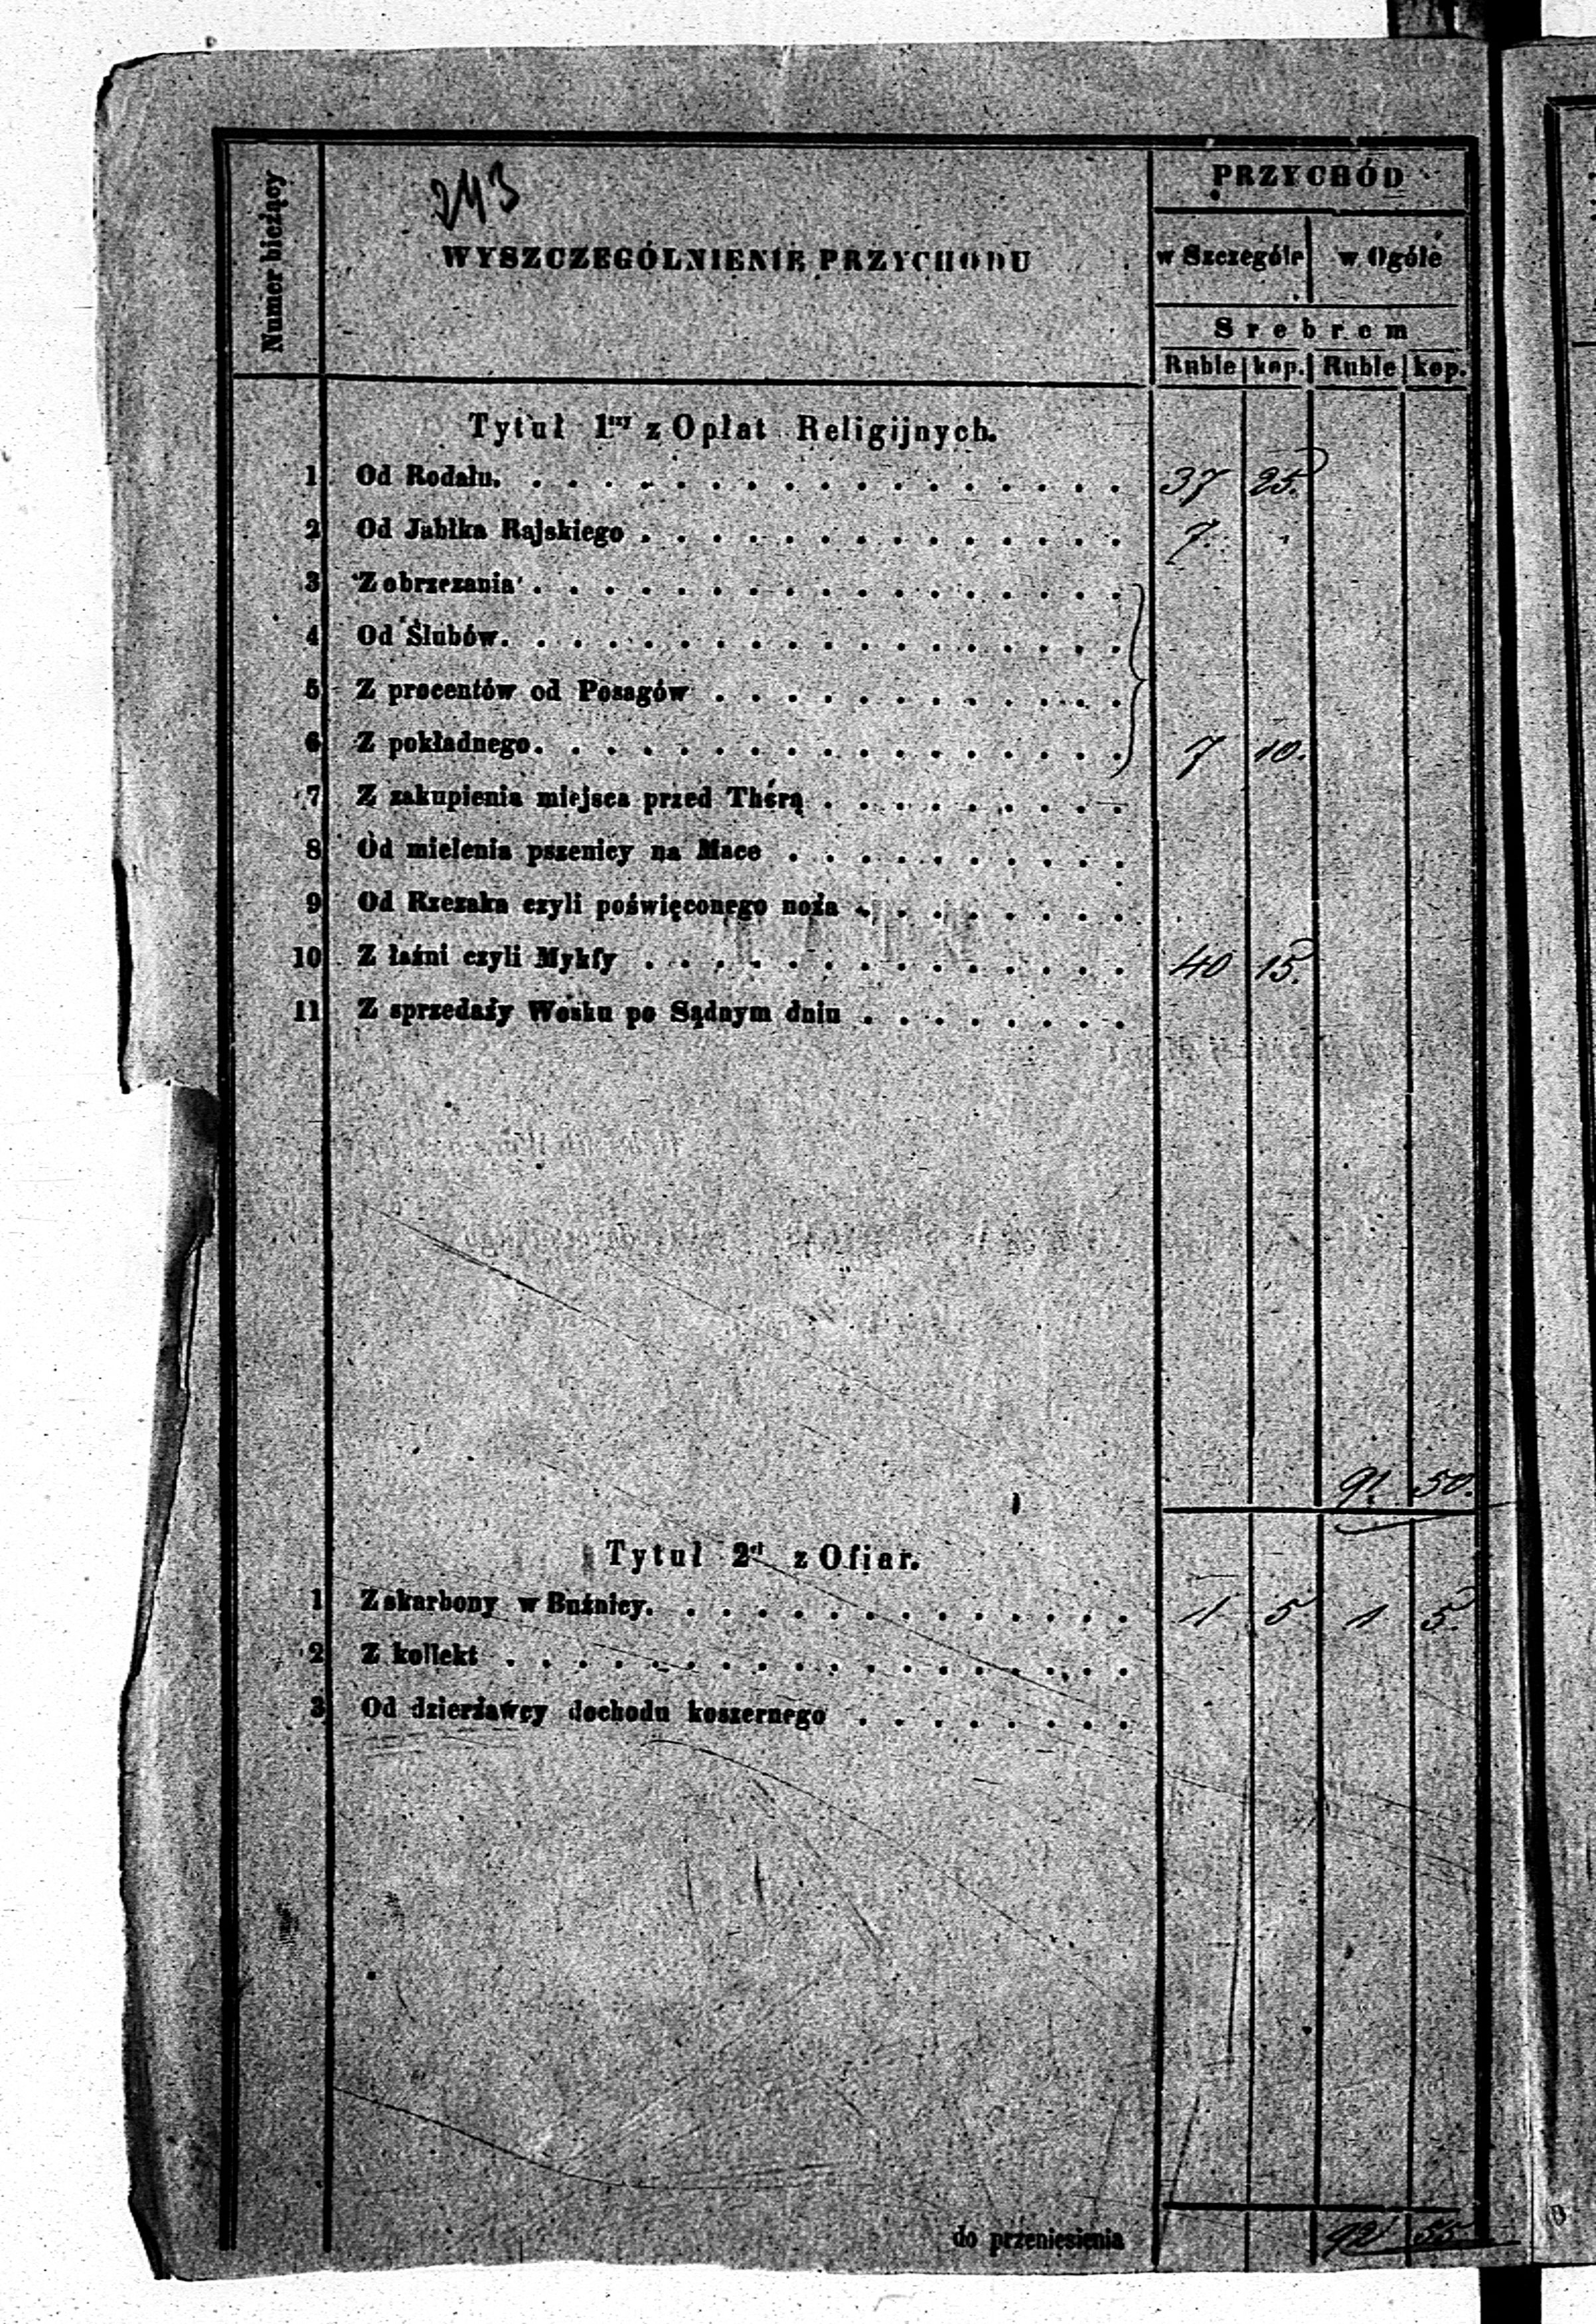 243
Numer bieżący
WYSZCZEGÓLNIENIE PRZYCHODU
PRZYCHÓD
w Szczególe w Ogóle
Srebrem
Ruble kop. Ruble kop.
Tytuł 1ny z Opłat Religijnych.
1 Od Rodału. 37 25.
2 Od Jabłka Rajskiego 7.
3 Z obrzezania
4 Od Ślubów.
5 Z procentów od Posagów
6 Z pokładnego. 7 10.
7 Z zakupienia miejsca przed Thórą
8 Od mielenia pszenicy na Mace
9 Od Rzezaka czyli poświęconego noża
10 Z łaźni czyli Mykfy 40 15.
11 Z sprzedaży Wosku po Sądnym dniu
91 50.
Tytuł 2gi z Ofiar.
1 Z skarbony w Buźnicy. 1 5 1 5.
2 Z kollekt
3 Od dzierżawcy dochodu koszernego
do przeniesienia 92 55